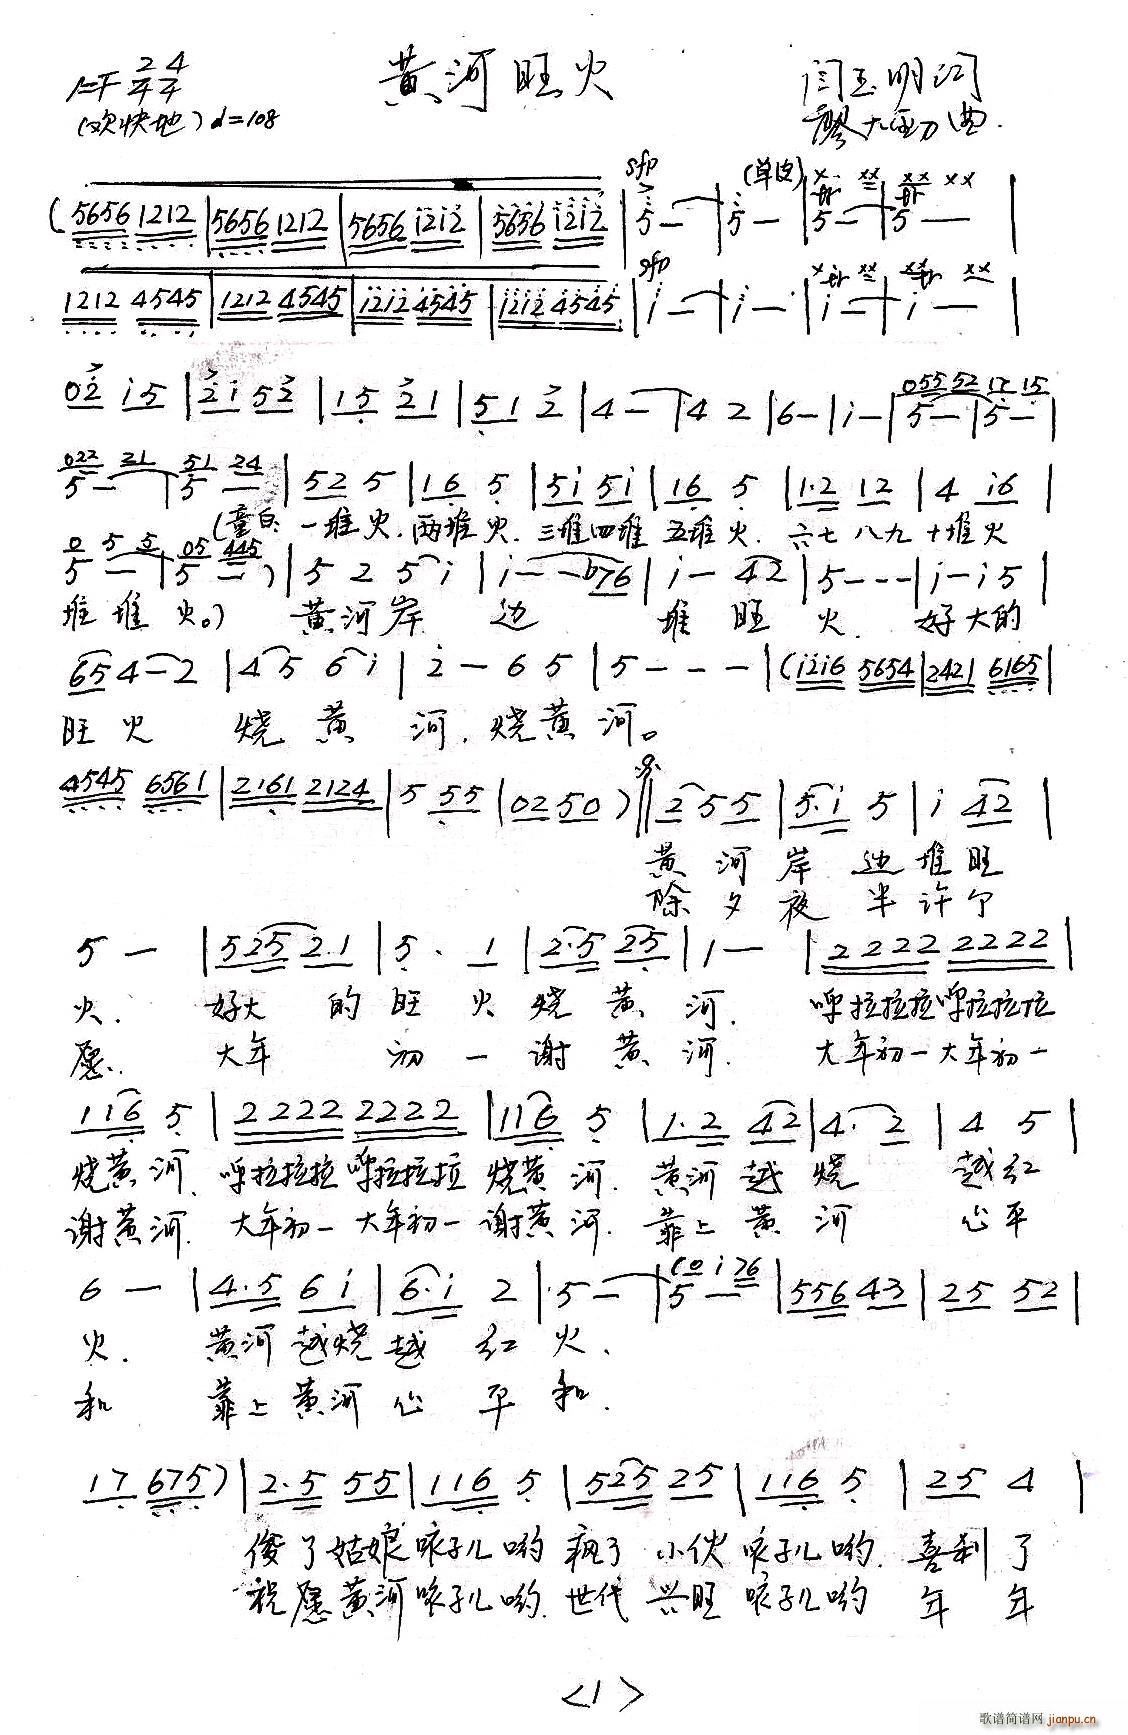 黄河旺火
1=F 2/4 4/4
闫玉明词
(欢快地) ♩=108
廖大勋曲.
sfp (单皮) x x· xx xx xx
(5656 1212 | 5656 1212 | 5656 1212 | 5656 1212 | 5 — | 5 — | 5 — | 5 — |
sfp
1212 4545 | 1212 4545 | 1212 4545 | 1212 4545 | i — | i — | i — | i — |
055 52 12 15
02 i5 | 2i 52 | 15 21 | 51 2 | 4 — | 4 2 | 6 — | i — | 5 — | 5 — |
022 21 51 24
5 — | 5 — | 52 5 | 16 5 | 5i 5i | 16 5 | 1·2 12 | 4 i6 |
(童白: 一堆火.两堆火.三堆四堆 五堆火.六七八九十堆火
0 5 5 05 445
5 — | 5 — ) | 5 2 5 i | i — — b76 | i — 42 | 5 - - - | i — i 5 |
堆堆火。) 黄河岸 边 堆旺火. 好大的
65 4 — 2 | 4 5 6 i | 2 — 6 5 | 5 - - - | (i2i6 5654 | 2421 6165 |
旺火 烧黄河.烧黄河。
4545 6561 | 2161 2124 | 5 55 | 02 50 ) 𝄋 || 2 55 | 5·i 5 | i 42 |
黄河岸边堆旺
除夕夜半许个
5 — | 525 2·1 | 5· 1 | 2·5 25 | 1 — | 2222 2222 |
火. 好大的旺火烧黄河. 呼拉拉拉呼拉拉拉
愿. 大年初一谢黄河. 大年初一大年初一
116 5 | 2222 2222 | 116 5 | 1·2 42 | 4· 2 | 4 5 |
烧黄河.呼拉拉拉呼拉拉拉烧黄河.黄河越烧越红
谢黄河.大年初一大年初一谢黄河.靠上黄河心平
(0 i 76
6 — | 4·5 6i | 6·i 2 | 5 — | 5 — | 556 43 | 25 52 |
火. 黄河越烧越红火.
和 靠上黄河心平和.
17 675) | 2·5 55 | 116 5 | 525 25 | 116 5 | 25 4 |
俊了姑娘咏子儿哟疯了小伙咏子儿哟.喜利了
祝愿黄河咏子儿哟.世代兴旺咳子儿哟年年
<1>
歌谱简谱网 jianpu.cn